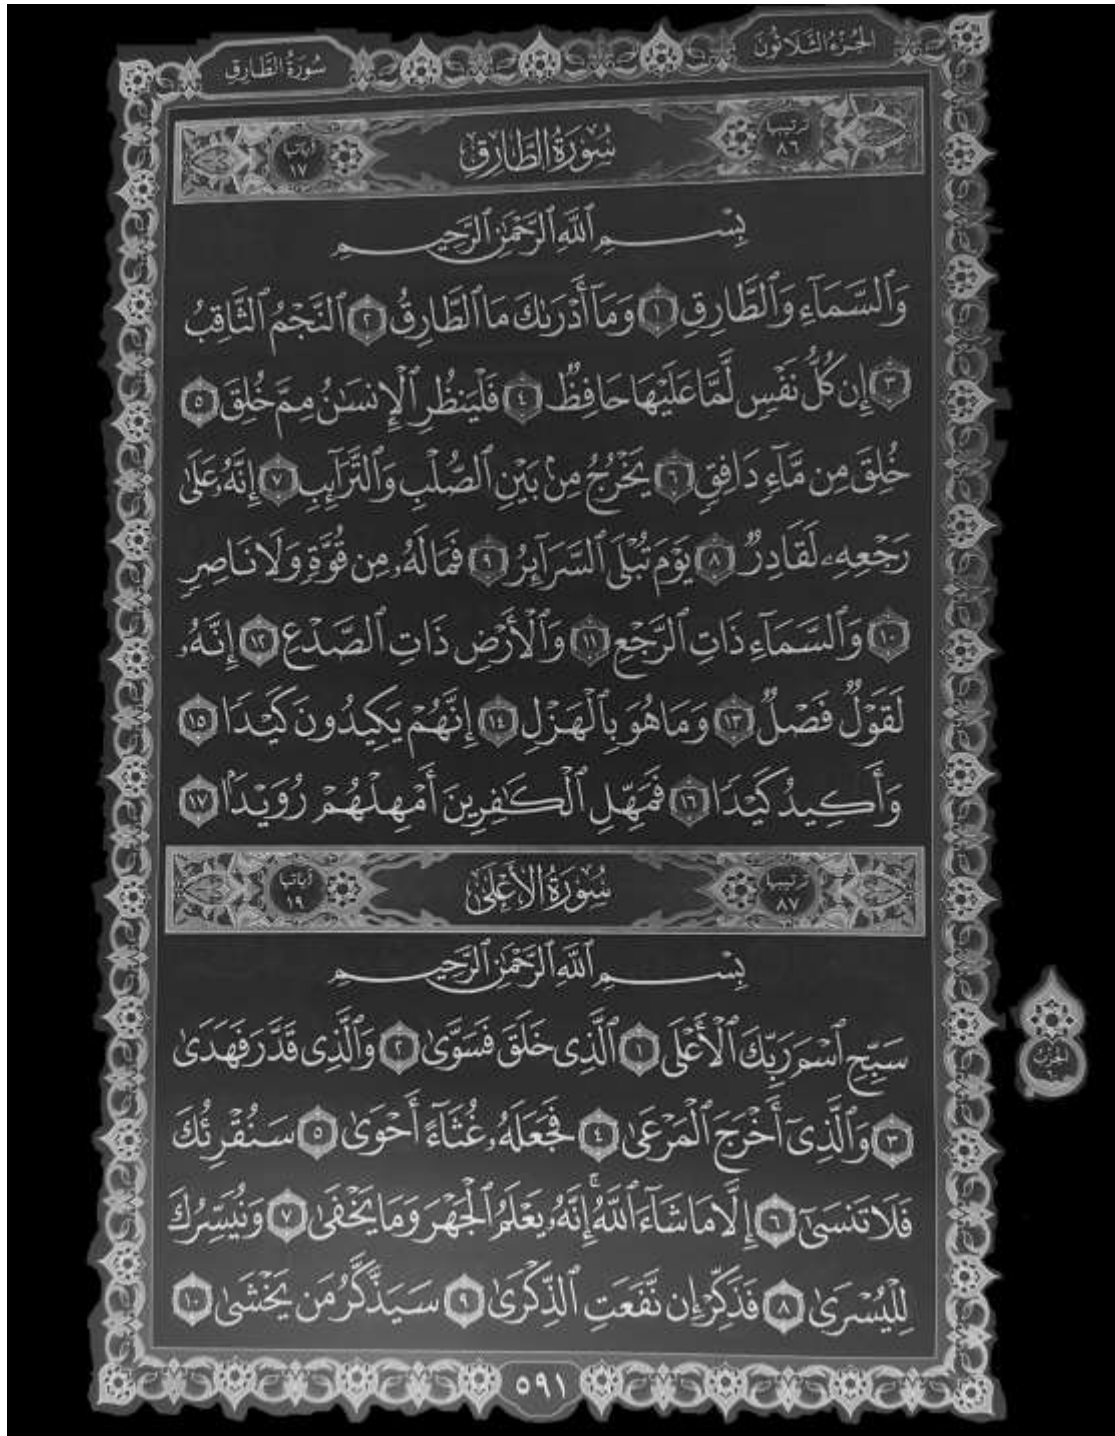 الجزء الثلاثون
سورة الطارق
ترتيبها ٨٦
سُورَةُ الطَّارِقِ
آياتها ١٧
بِسْمِ ٱللَّهِ ٱلرَّحْمَٰنِ ٱلرَّحِيمِ
وَٱلسَّمَآءِ وَٱلطَّارِقِ ١ وَمَآ أَدْرَىٰكَ مَا ٱلطَّارِقُ ٢ ٱلنَّجْمُ ٱلثَّاقِبُ
٣ إِن كُلُّ نَفْسٍ لَّمَّا عَلَيْهَا حَافِظٌ ٤ فَلْيَنظُرِ ٱلْإِنسَٰنُ مِمَّ خُلِقَ ٥
خُلِقَ مِن مَّآءٍ دَافِقٍ ٦ يَخْرُجُ مِنۢ بَيْنِ ٱلصُّلْبِ وَٱلتَّرَآئِبِ ٧ إِنَّهُۥ عَلَىٰ
رَجْعِهِۦ لَقَادِرٌ ٨ يَوْمَ تُبْلَى ٱلسَّرَآئِرُ ٩ فَمَا لَهُۥ مِن قُوَّةٍ وَلَا نَاصِرٍ
١٠ وَٱلسَّمَآءِ ذَاتِ ٱلرَّجْعِ ١١ وَٱلْأَرْضِ ذَاتِ ٱلصَّدْعِ ١٢ إِنَّهُۥ
لَقَوْلٌ فَصْلٌ ١٣ وَمَا هُوَ بِٱلْهَزْلِ ١٤ إِنَّهُمْ يَكِيدُونَ كَيْدًا ١٥
وَأَكِيدُ كَيْدًا ١٦ فَمَهِّلِ ٱلْكَٰفِرِينَ أَمْهِلْهُمْ رُوَيْدًۢا ١٧
ترتيبها ٨٧
سُورَةُ الأَعْلَىٰ
آياتها ١٩
بِسْمِ ٱللَّهِ ٱلرَّحْمَٰنِ ٱلرَّحِيمِ
سَبِّحِ ٱسْمَ رَبِّكَ ٱلْأَعْلَى ١ ٱلَّذِى خَلَقَ فَسَوَّىٰ ٢ وَٱلَّذِى قَدَّرَ فَهَدَىٰ
٣ وَٱلَّذِىٓ أَخْرَجَ ٱلْمَرْعَىٰ ٤ فَجَعَلَهُۥ غُثَآءً أَحْوَىٰ ٥ سَنُقْرِئُكَ
فَلَا تَنسَىٰٓ ٦ إِلَّا مَا شَآءَ ٱللَّهُ ۚ إِنَّهُۥ يَعْلَمُ ٱلْجَهْرَ وَمَا يَخْفَىٰ ٧ وَنُيَسِّرُكَ
لِلْيُسْرَىٰ ٨ فَذَكِّرْ إِن نَّفَعَتِ ٱلذِّكْرَىٰ ٩ سَيَذَّكَّرُ مَن يَخْشَىٰ ١٠
الحزب
٥٩١